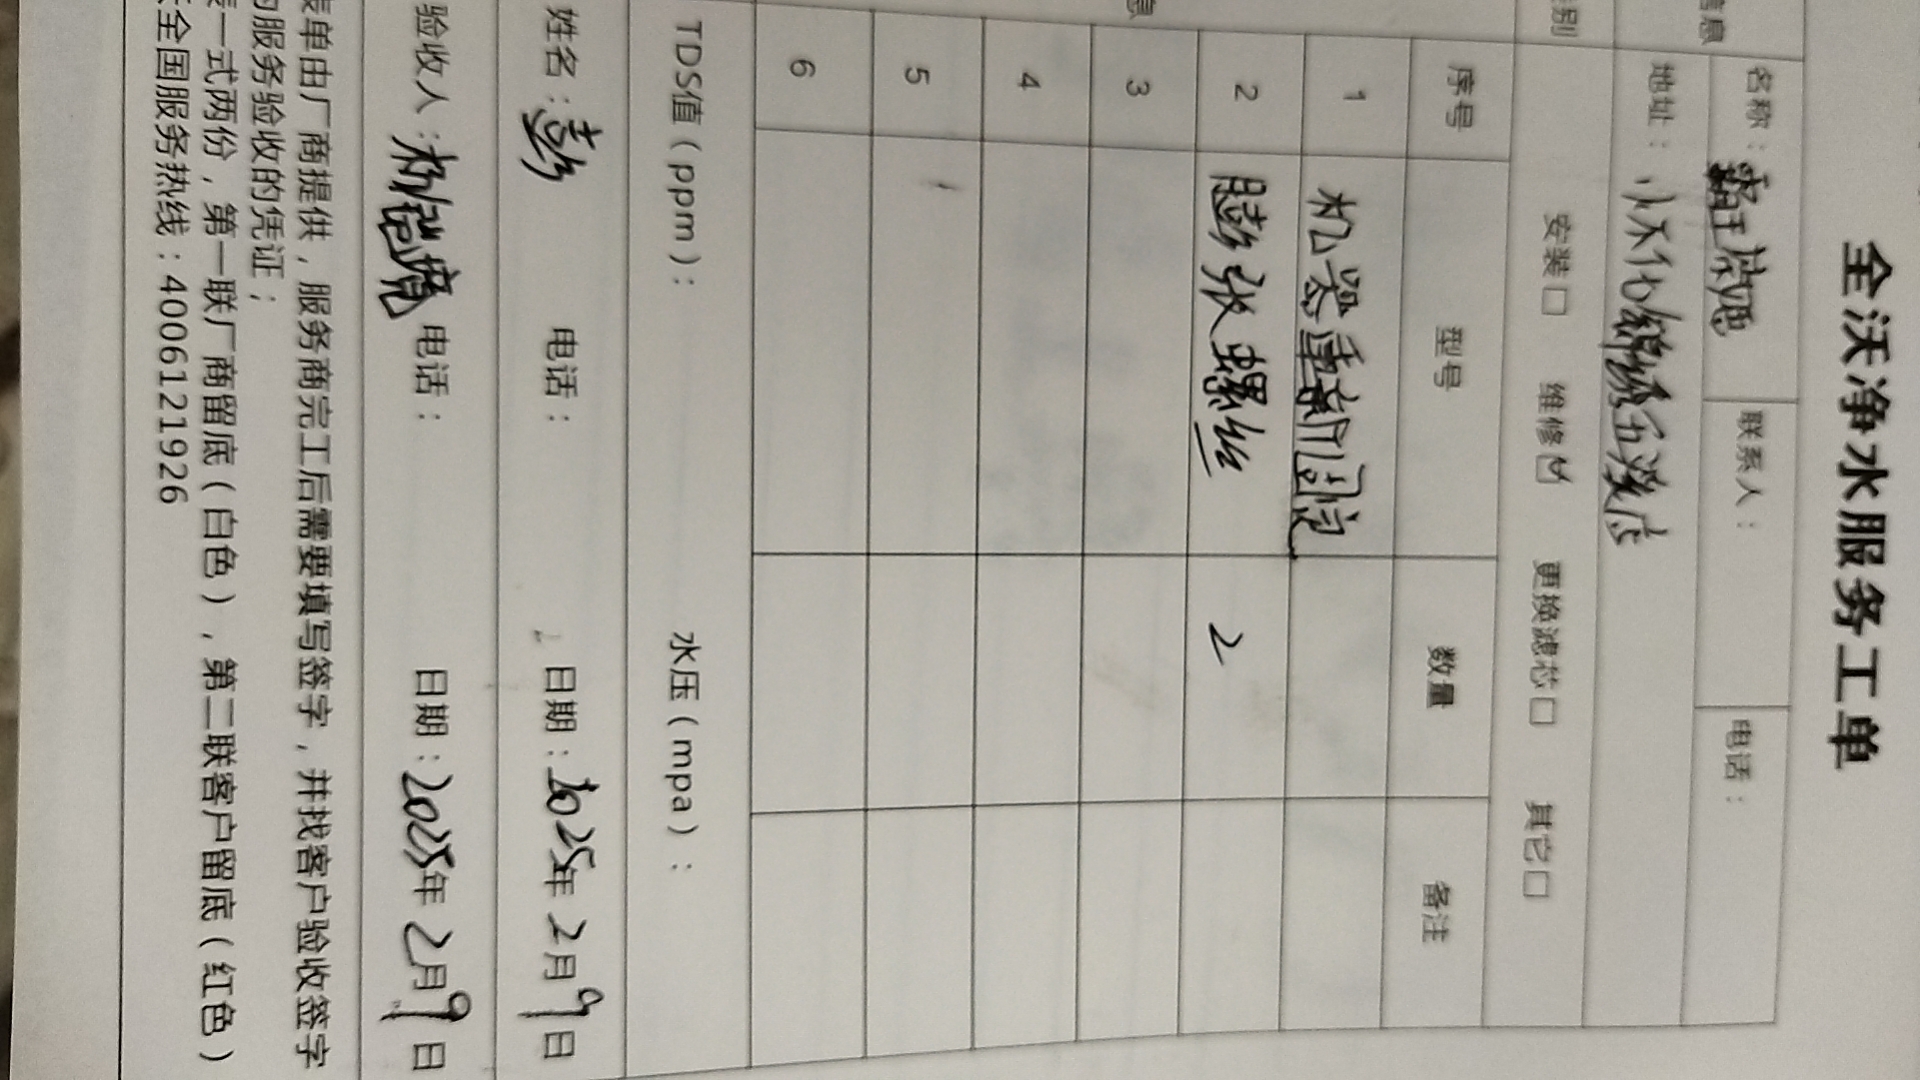 全沃净水服务工单
信息 名称：霸王茶姬 联系人： 电话：
地址：怀化锦绣五溪店
别 安装□ 维修☑ 更换滤芯□ 其它□
息 序号 型号 数量 备注
1 机器重新固定
2 膨胀螺丝 2
3
4
5
6
TDS值（ppm）： 水压（mpa）：
姓名：彭 电话： 日期：2025年2月9日
验收人： 电话： 日期：2025年2月9日
表单由厂商提供，服务商完工后需要填写签字，并找客户验收签字
服务验收的凭证；
一式两份，第一联厂商留底（白色），第二联客户留底（红色）
全国服务热线：4006121926